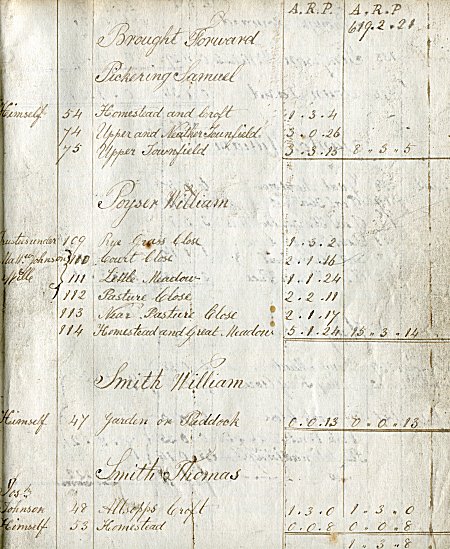 A. R. P. A. R. P
Brought Forward 619. 2. 21
Pickering Samuel
Himself 54 Homestead and Croft 1. 3. 4
74 Upper and Neather Townfield 3. 0. 26
75 Upper Townfield 3. 3. 15 8. 3. 5
Poyser William
Trustees under 109 Rye Grass Close 1. 3. 2
Johnson 110 Court Close 2. 1. 16
111 Little Meadow 1. 1. 24
112 Pasture Close 2. 2. 11
113 Near Pasture Close 2. 1. 17
114 Homestead and Great Meadow 5. 1. 24 15. 3. 14
Smith William
Himself 47 Garden or Paddock 0. 0. 13 0. 0. 13
Smith Thomas
Josh
Johnson 48 Allsopps Croft 1. 3. 0 1. 3. 0
Himself 53 Homestead 0. 0. 8 0. 0. 8
1. 3. 8